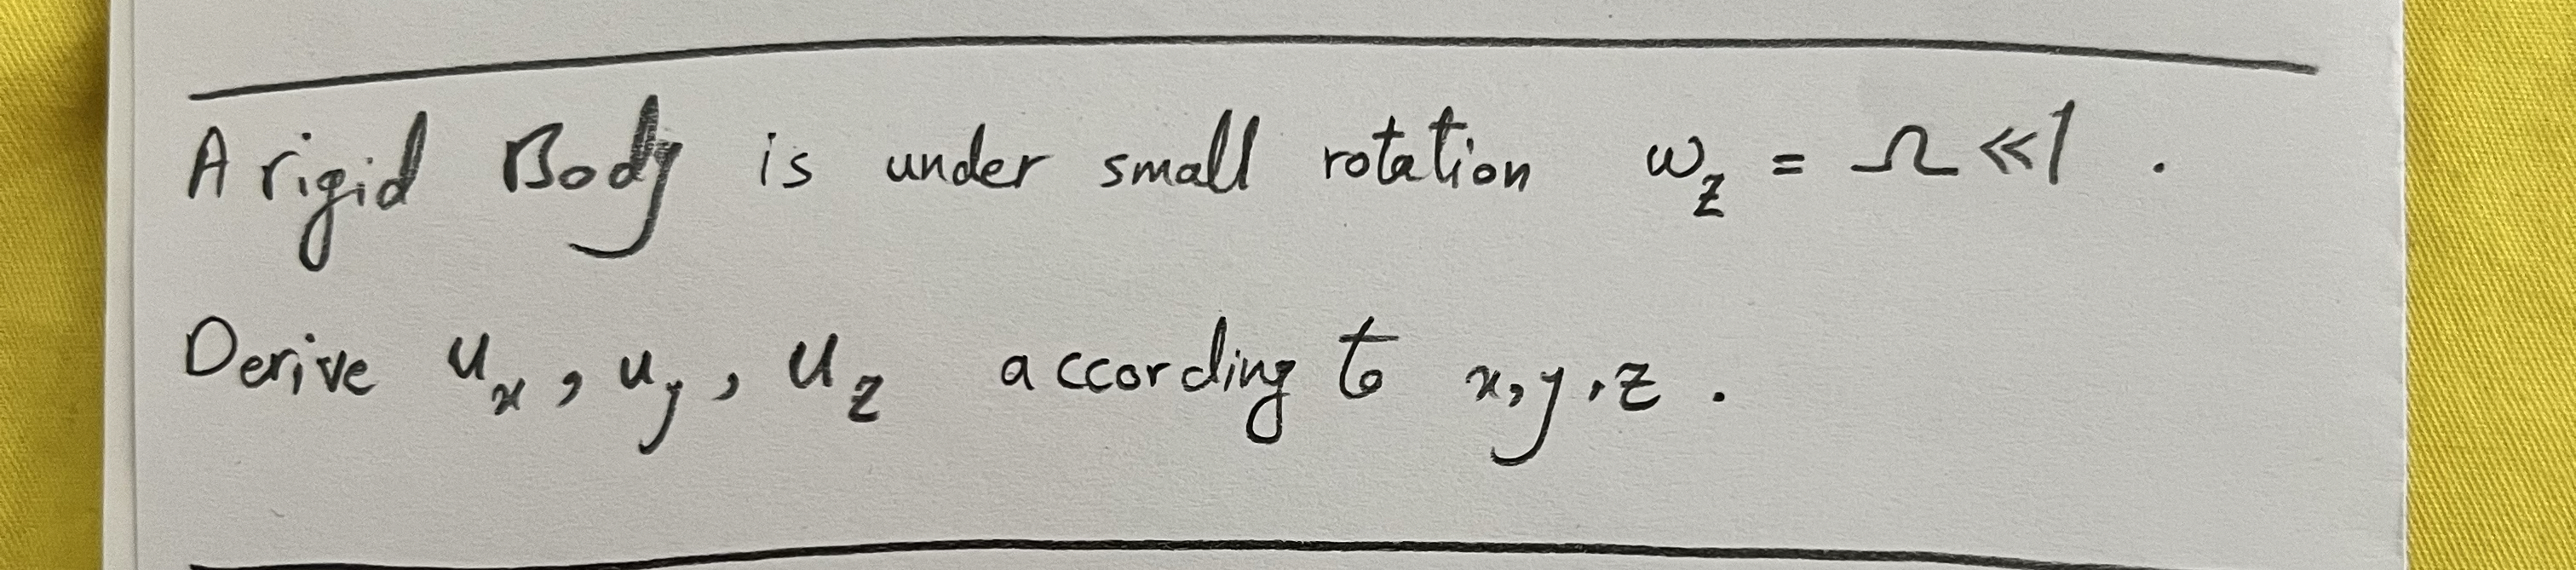 A rigid Body is under small rotation ω_z = Ω ≪ 1 .
Derive u_x , u_y , u_z according to x, y, z .